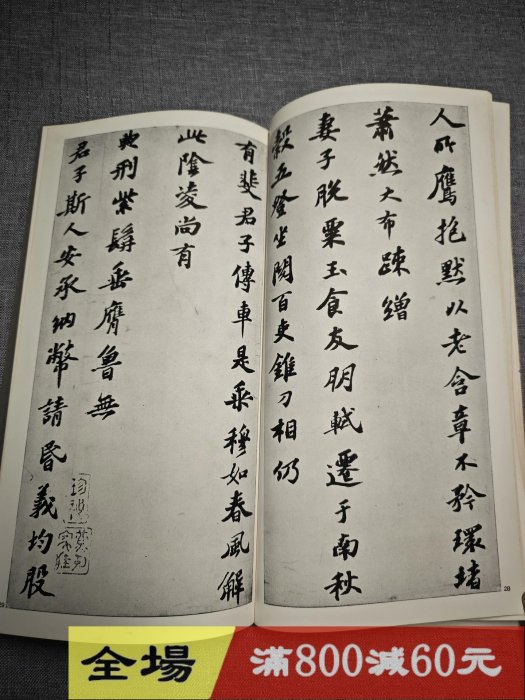 人所鷹抱默以老含章不矜環堵
蕭然大布疎繒
妻子脫粟玉食友朋軾遷于南秋
穀五登坐閱百吏錐刀相仍
28
有斐君子傳車是乘穆如春風解
此陰凌尚有
典刑紫髯垂膺魯無
君子斯人安承納幣請昏義均股
全場
滿800減60元